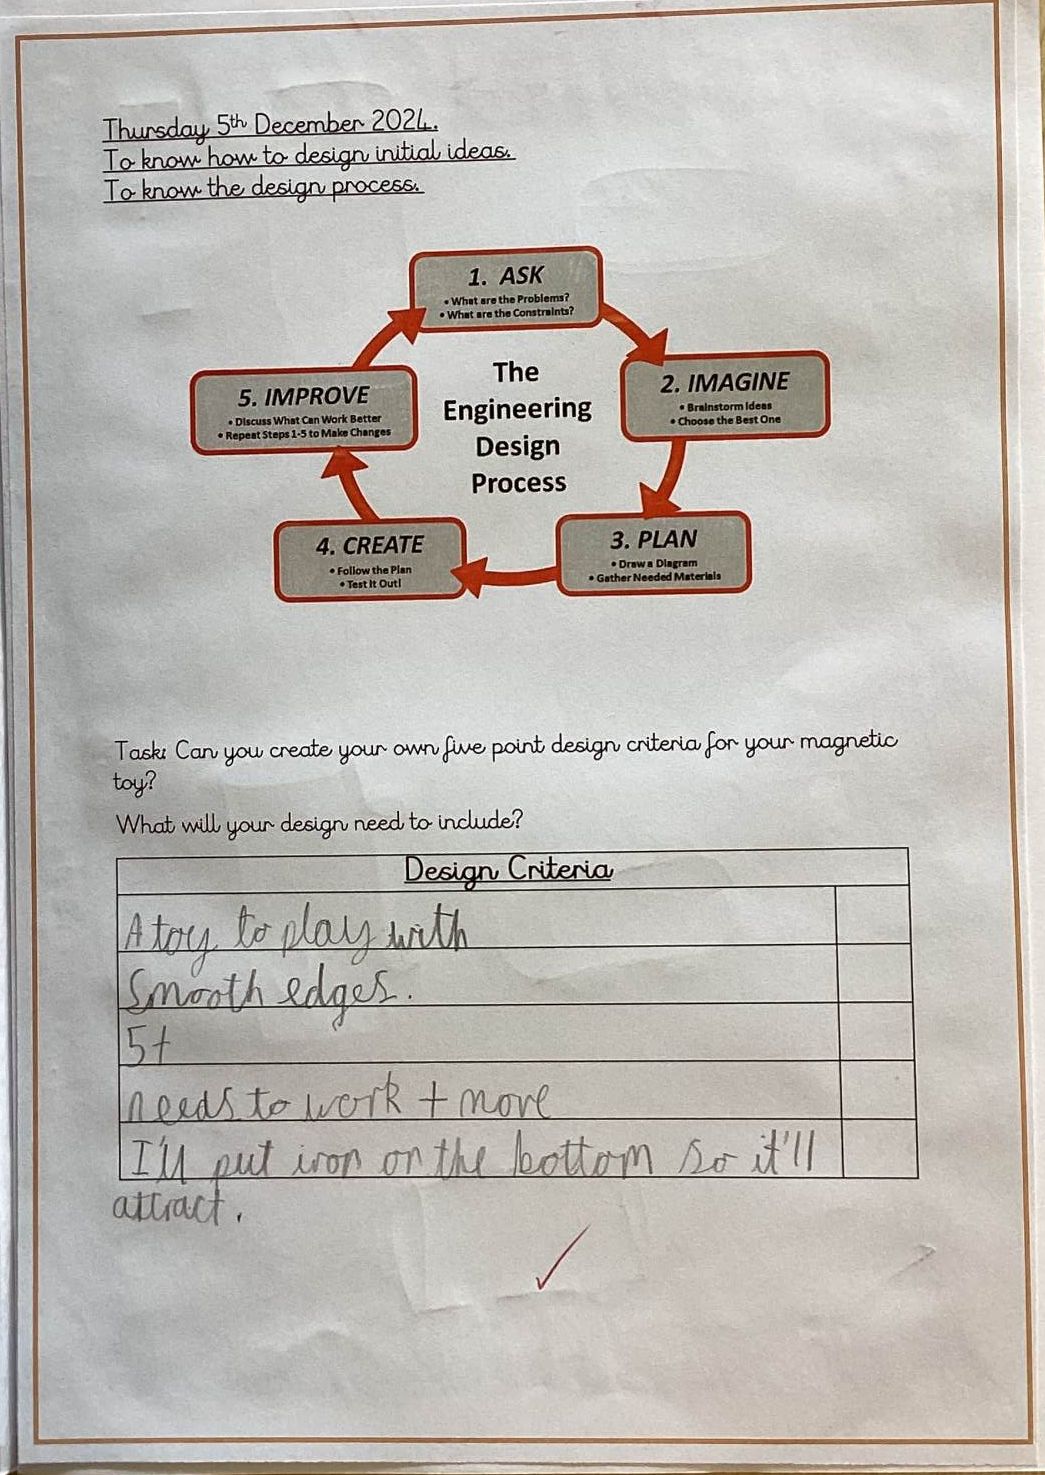 Thursday 5th December 2024.
To know how to design initial ideas.
To know the design process.
1. ASK
• What are the Problems?
• What are the Constraints?
2. IMAGINE
• Brainstorm Ideas
• Choose the Best One
The
Engineering
Design
Process
3. PLAN
• Draw a Diagram
• Gather Needed Materials
4. CREATE
• Follow the Plan
• Test It Out!
5. IMPROVE
• Discuss What Can Work Better
• Repeat Steps 1-5 to Make Changes
Task: Can you create your own five point design criteria for your magnetic
toy?
What will your design need to include?
Design Criteria
A toy to play with
Smooth edges.
5+
needs to work + move
I'll put iron on the bottom so it'll
attract.